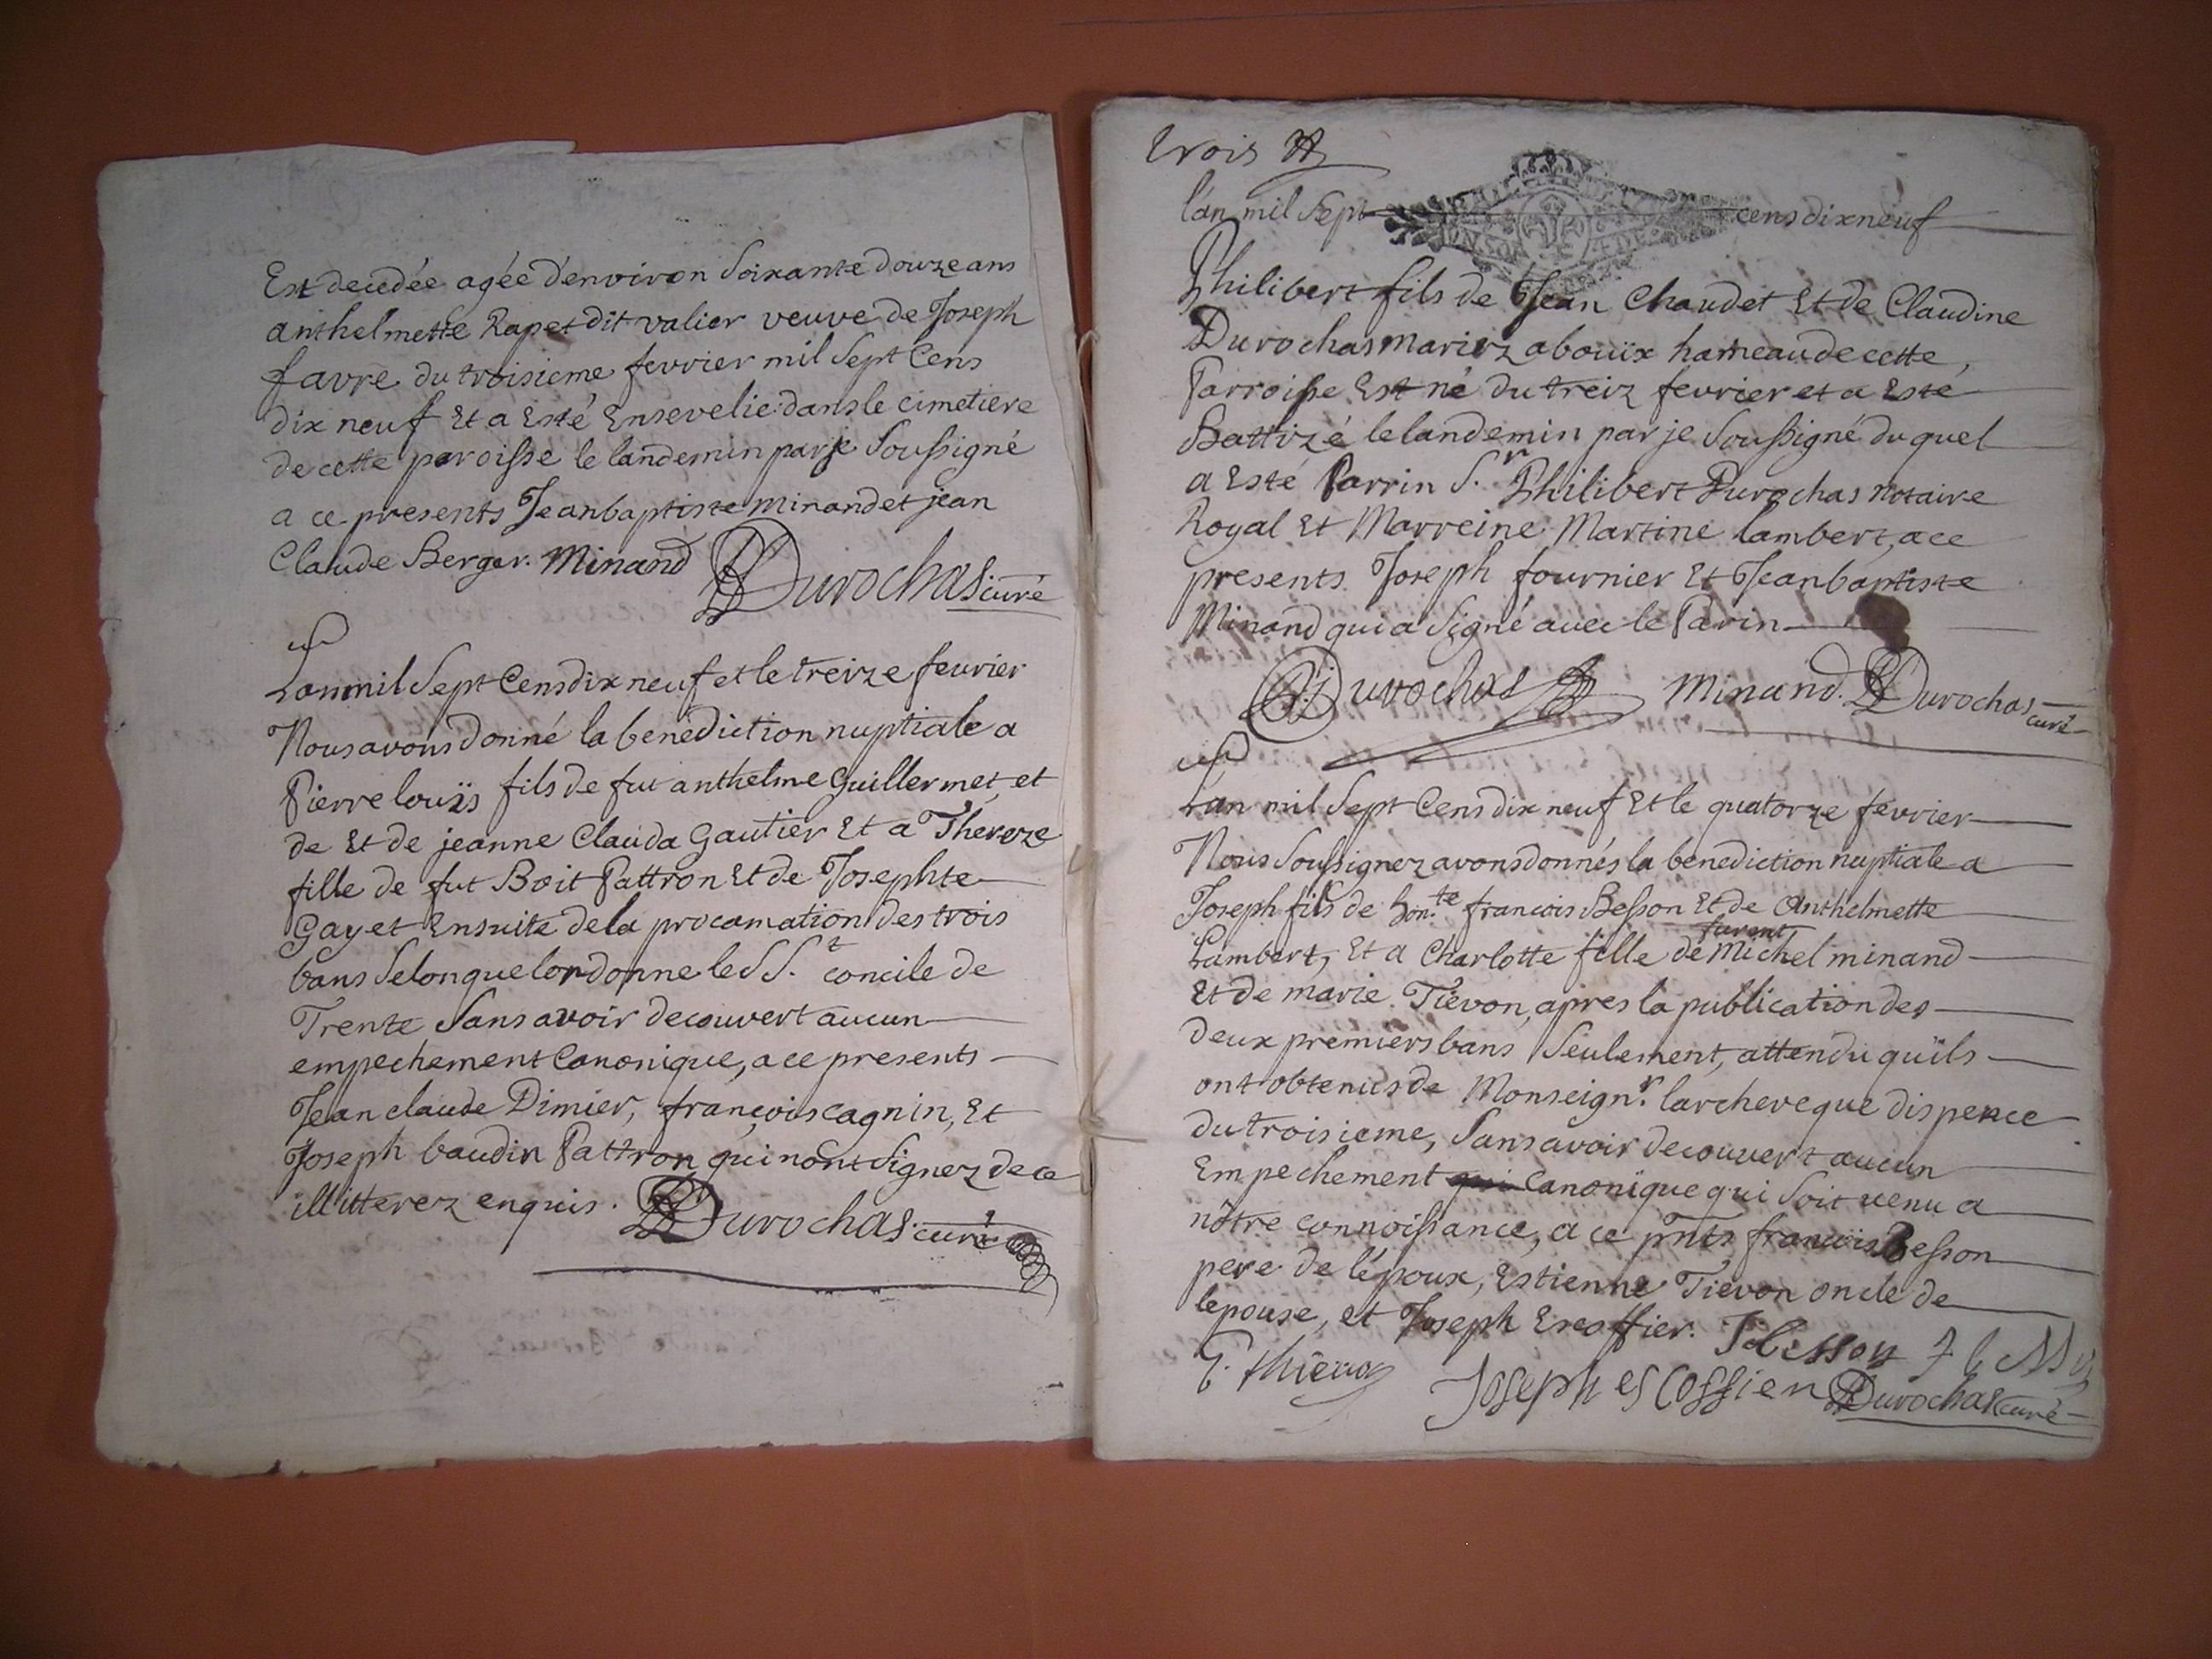 Est decedée agée d'environ Soixante douze ans
anthelmette Rapet dit valier veuve de Joseph
favre du troisieme fevrier mil Sept Cens
dix neuf Et a Esté Ensevelie dans le cimetiere
de cette paroisse le landemin par je Soussigné
a ce presents Jean baptiste minand et jean
Claude Berger. Minand Durochas curé
Lan mil Sept Cens dix neuf et le treize feurier
Nous avons donné la benediction nuptiale a
Pierre louïs fils de fut anthelme Guillermet et
de Et de jeanne Clauda Gautier Et a Thereze
fille de fut Boit Pattron Et de Josephte
Gayet Ensuite de la procamation des trois
bans Selon que lordonne le S S.t concile de
Trente Sans avoir decouvert aucun
empechement Canonique, a ce presents
Jean claude Dimier, françois cagnin, Et
Joseph baudin Pattron qui nont Signez de ce
illitterez enquis. Durochas curé
trois
l'an mil Sept cens dix neuf
Philibert fils de Jean Chaudet Et de Claudine
Durochas mariez a bouïx hameau de cette
Parroisse Est né du treiz fevrier et a Esté
Battizé le landemin par je Soussigné du quel
a Esté Parrin S.r Philibert Durochas notaire
Royal Et Marreine Martine lambert, a ce
presents Joseph fournier Et Jean baptiste
Minand qui a Signé avec le Parin
Durochas Minand. Durochas curé
L'an mil Sept Cens dix neuf Et le quatorze fevrier
Nous Soussignez avons donnés la benediction nuptiale a
Joseph fils de hon.te francois Besson Et de Anthelmette
Lambert, Et a Charlotte fille de furent Michel minand
Et de marie Tievon, apres la publication des
deux premiers bans Seulement, attendu quïls
ont obtenus de Monseign.r larcheveque dispence
du troisieme, Sans avoir decouvert aucun
Empechement qui Canonique qui Soit venu a
nôtre connoissance, a ce pnts francois Besson
pere de l'époux, Estienne Tievon oncle de
lepouse, et Joseph Escoffier. J besson
E. thievon Joseph escoffier Durochas curé